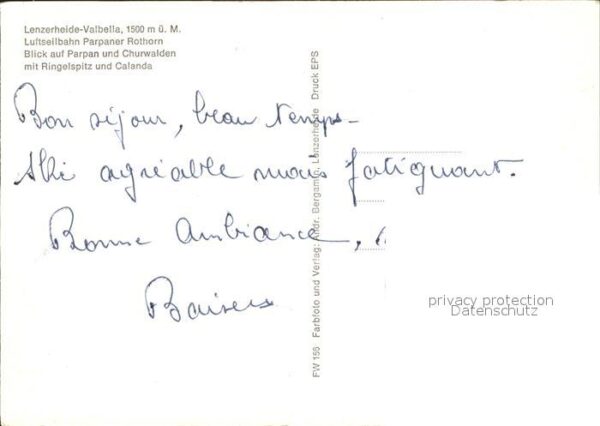 Lenzerheide-Valbella, 1500 m ü. M.
Luftseilbahn Parpaner Rothorn
Blick auf Parpan und Churwalden
mit Ringelspitz und Calanda
Bon séjour, beau temps -
Ski agréable mais fatiguant.
Bonne Ambiance,
Baisers
FW 156 Farbfoto und Verlag: Andr. Bergamin, Lenzerheide Druck EPS
privacy protection
Datenschutz